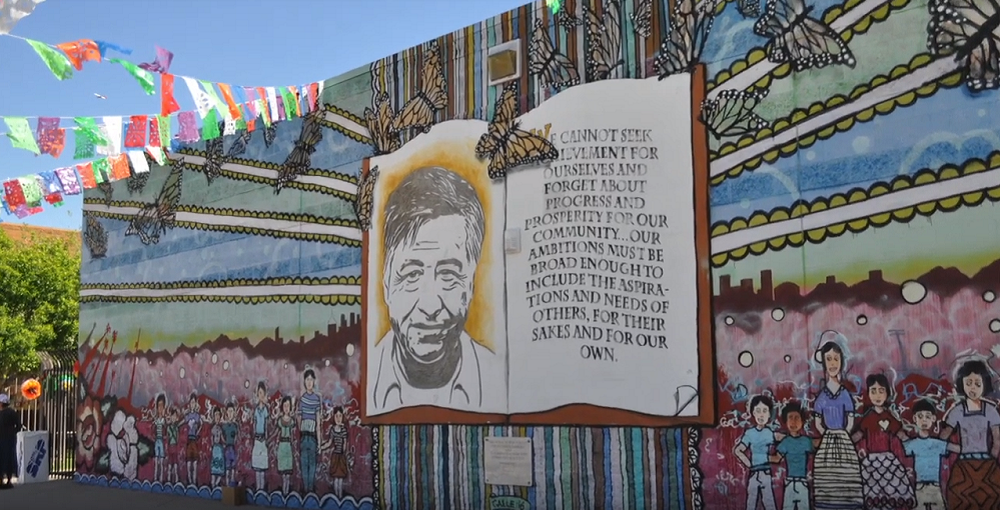 WE CANNOT SEEK
ACHIEVEMENT FOR
OURSELVES AND
FORGET ABOUT
PROGRESS AND
PROSPERITY FOR OUR
COMMUNITY...OUR
AMBITIONS MUST BE
BROAD ENOUGH TO
INCLUDE THE ASPIRA-
TIONS AND NEEDS OF
OTHERS, FOR THEIR
SAKES AND FOR OUR
OWN.